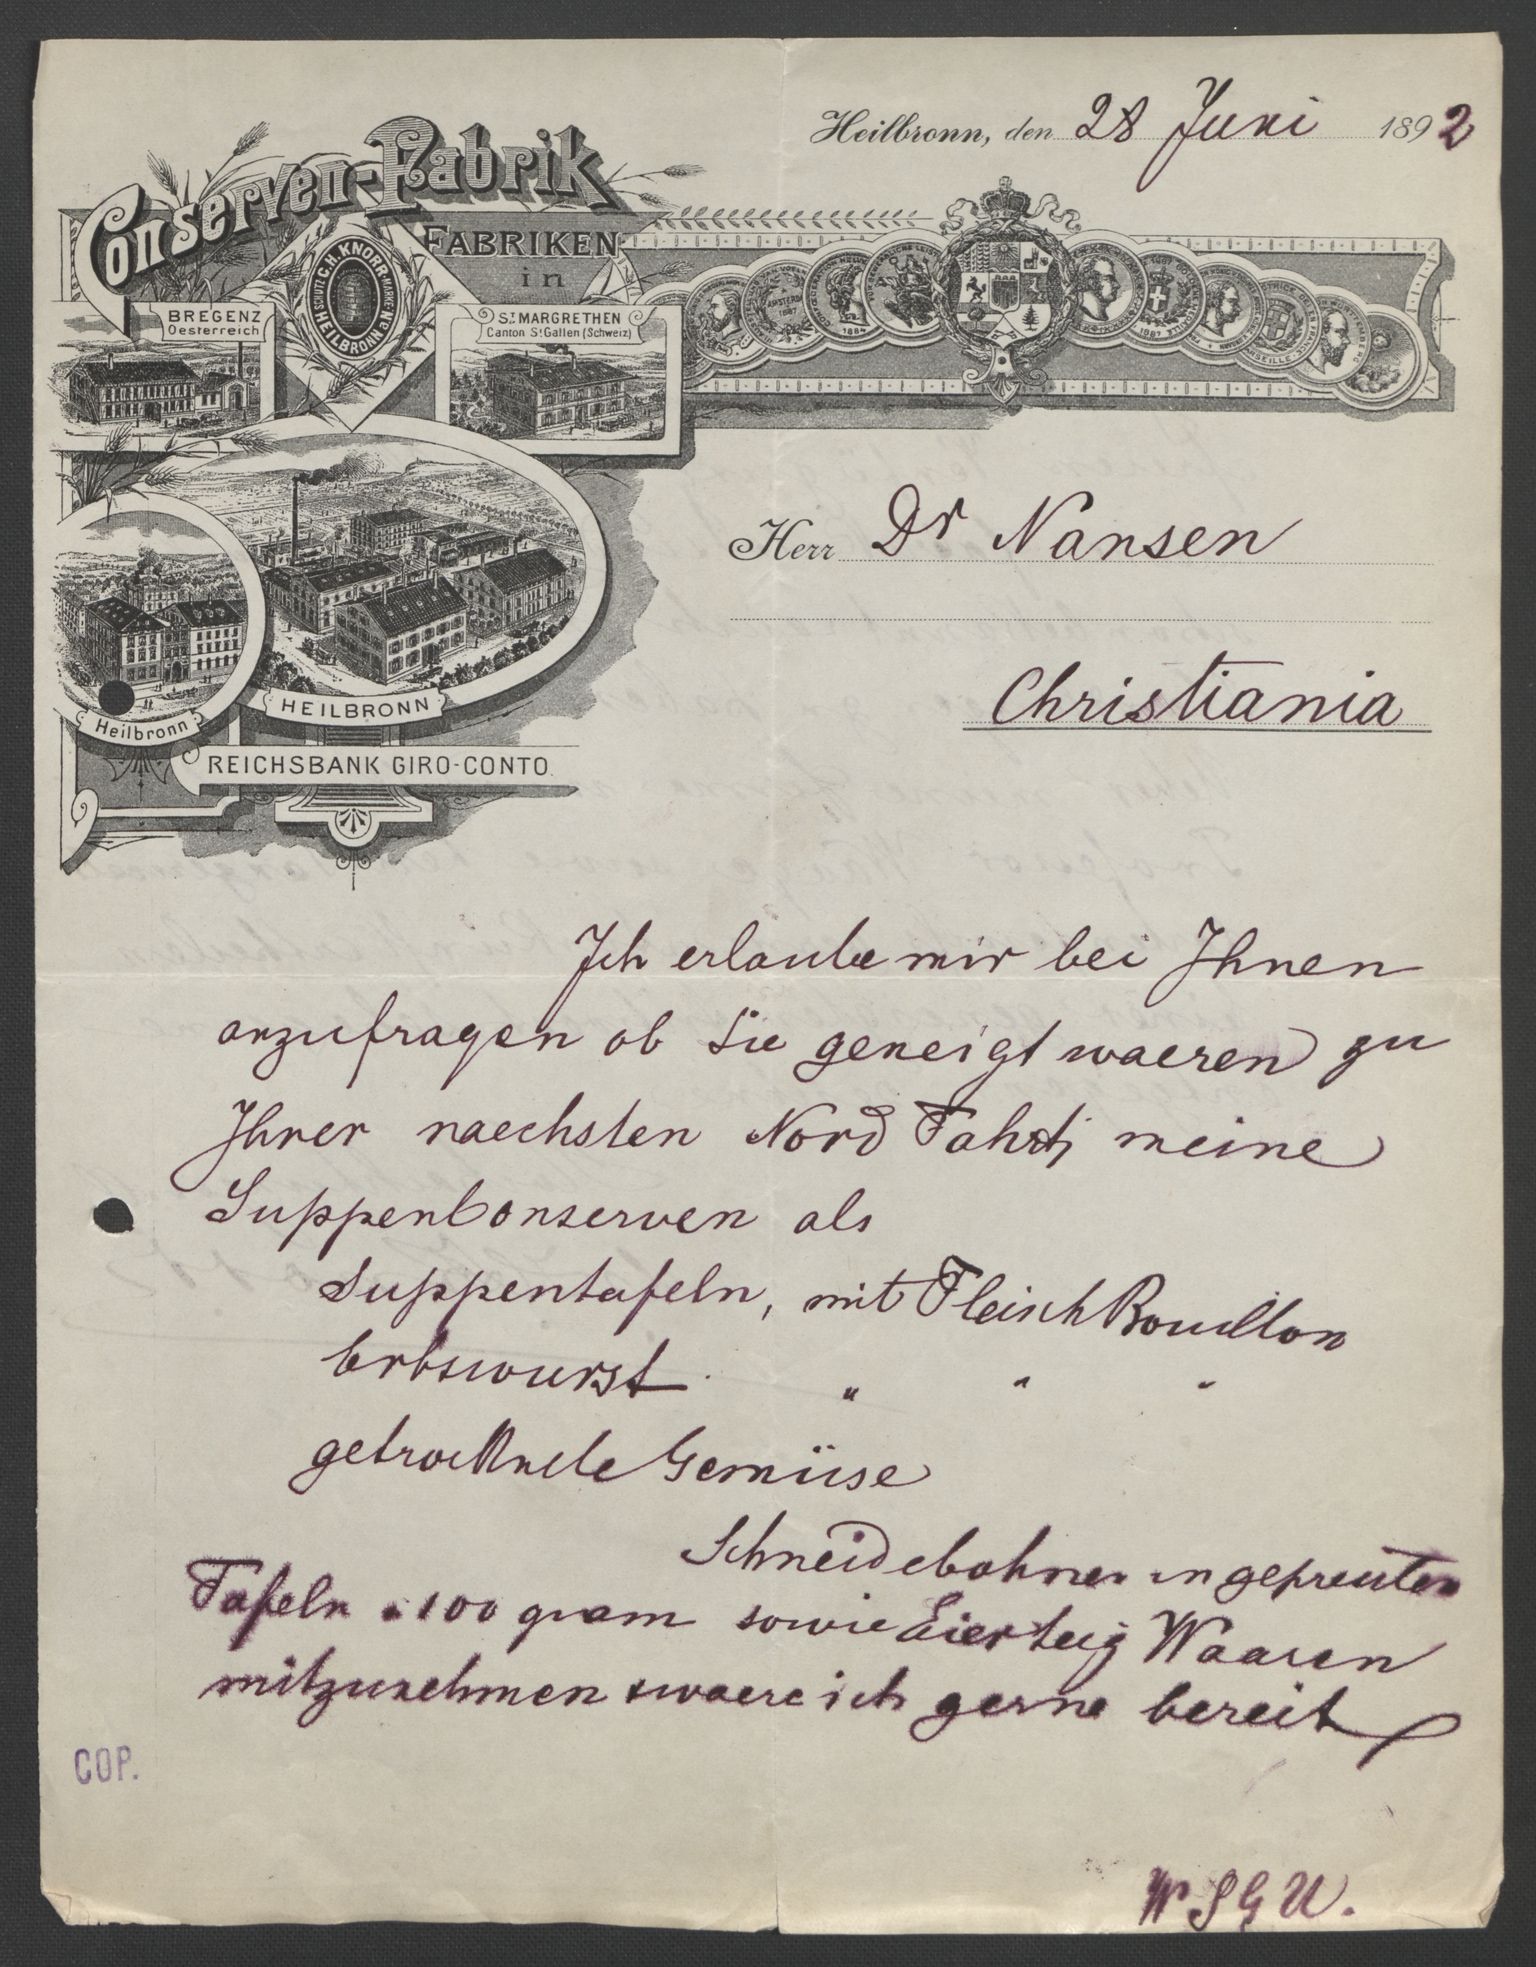 Heilbronn, den 28 Juni 1892
Conserven-Fabrik
FABRIKEN
in
SCHUTZ C.H. KNORR MARKE
HEILBRONN a/N.
BREGENZ
Oesterreich
ST. MARGRETHEN
Canton St Gallen (Schweiz)
Herr Dr Nansen
Christiania
HEILBRONN
Heilbronn
REICHSBANK GIRO-CONTO
Ich erlaube mir bei Ihnen
anzufragen ob Sie geneigt waeren zu
Ihrer naechsten Nord Fahrt meine
Suppenconserven als
Suppentafeln, mit Fleisch Bouillon
Erbswurst " " "
getrocknete Gemüse
Schneidebohnen in gepressten
Tafeln a 100 gram sowie Eierteig Waaren
mitzunehmen & waere ich gerne bereit
COP.
W S G U.